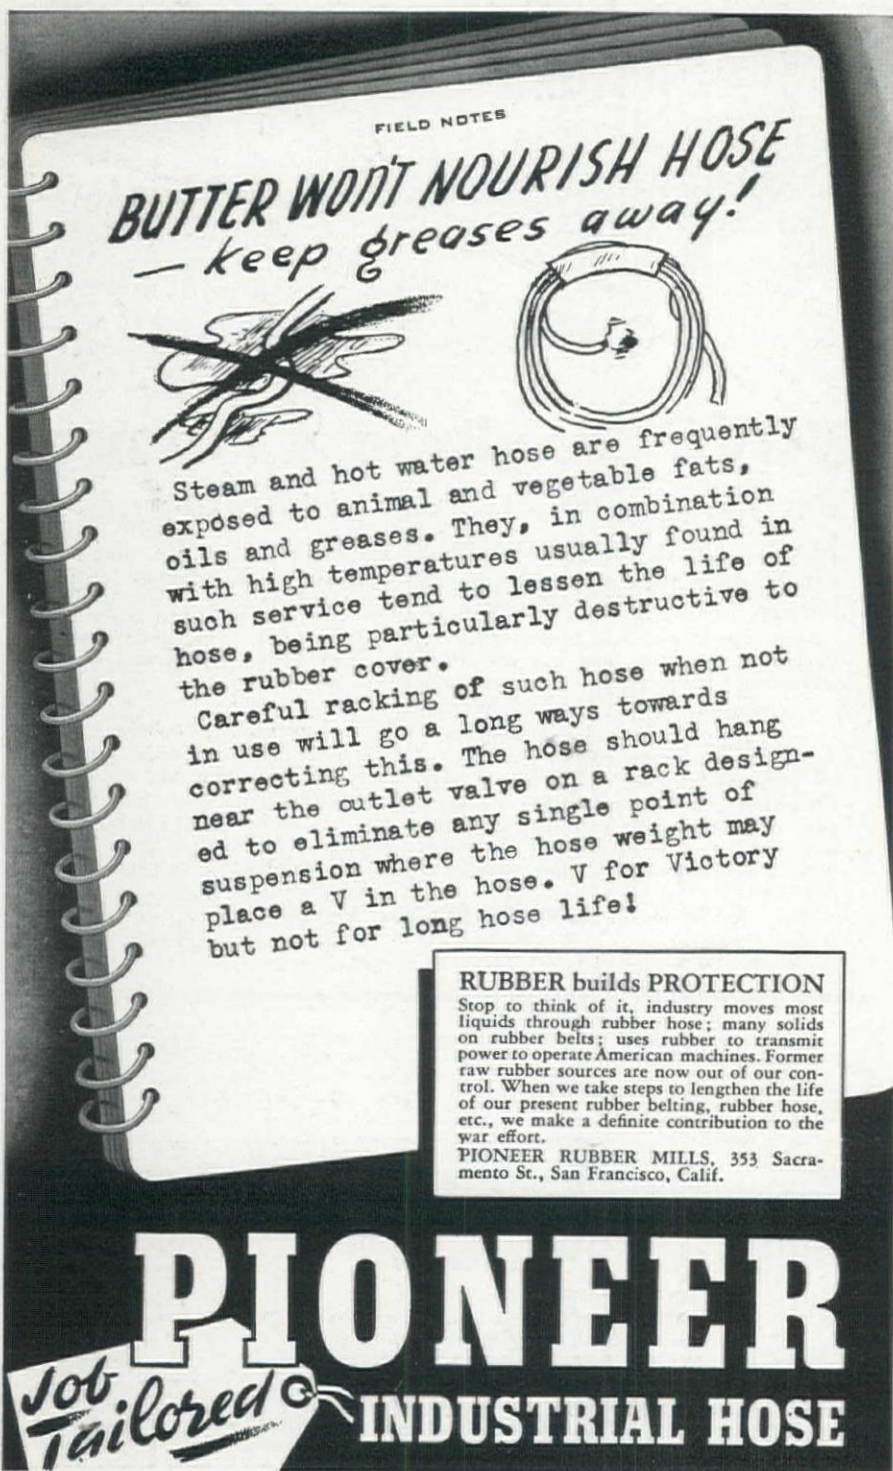 FIELD NOTES
BUTTER WON'T NOURISH HOSE
— keep greases away!
Steam and hot water hose are frequently
exposed to animal and vegetable fats,
oils and greases. They, in combination
with high temperatures usually found in
such service tend to lessen the life of
hose, being particularly destructive to
the rubber cover.
Careful racking of such hose when not
in use will go a long ways towards
correcting this. The hose should hang
near the outlet valve on a rack design-
ed to eliminate any single point of
suspension where the hose weight may
place a V in the hose. V for Victory
but not for long hose life!
RUBBER builds PROTECTION
Stop to think of it, industry moves most
liquids through rubber hose; many solids
on rubber belts; uses rubber to transmit
power to operate American machines. Former
raw rubber sources are now out of our con-
trol. When we take steps to lengthen the life
of our present rubber belting, rubber hose,
etc., we make a definite contribution to the
war effort.
PIONEER RUBBER MILLS, 353 Sacra-
mento St., San Francisco, Calif.
PIONEER
Job
Tailored
INDUSTRIAL HOSE